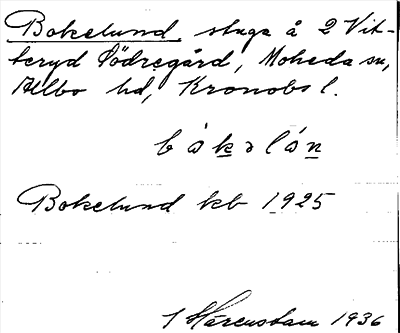 Bokelund stuga å 2 Vit-
teryd Södregård, Moheda sn,
Allbo hd, Kronobs l.
bókəlón
Bokelund kb 1925
Hårenstam 1936